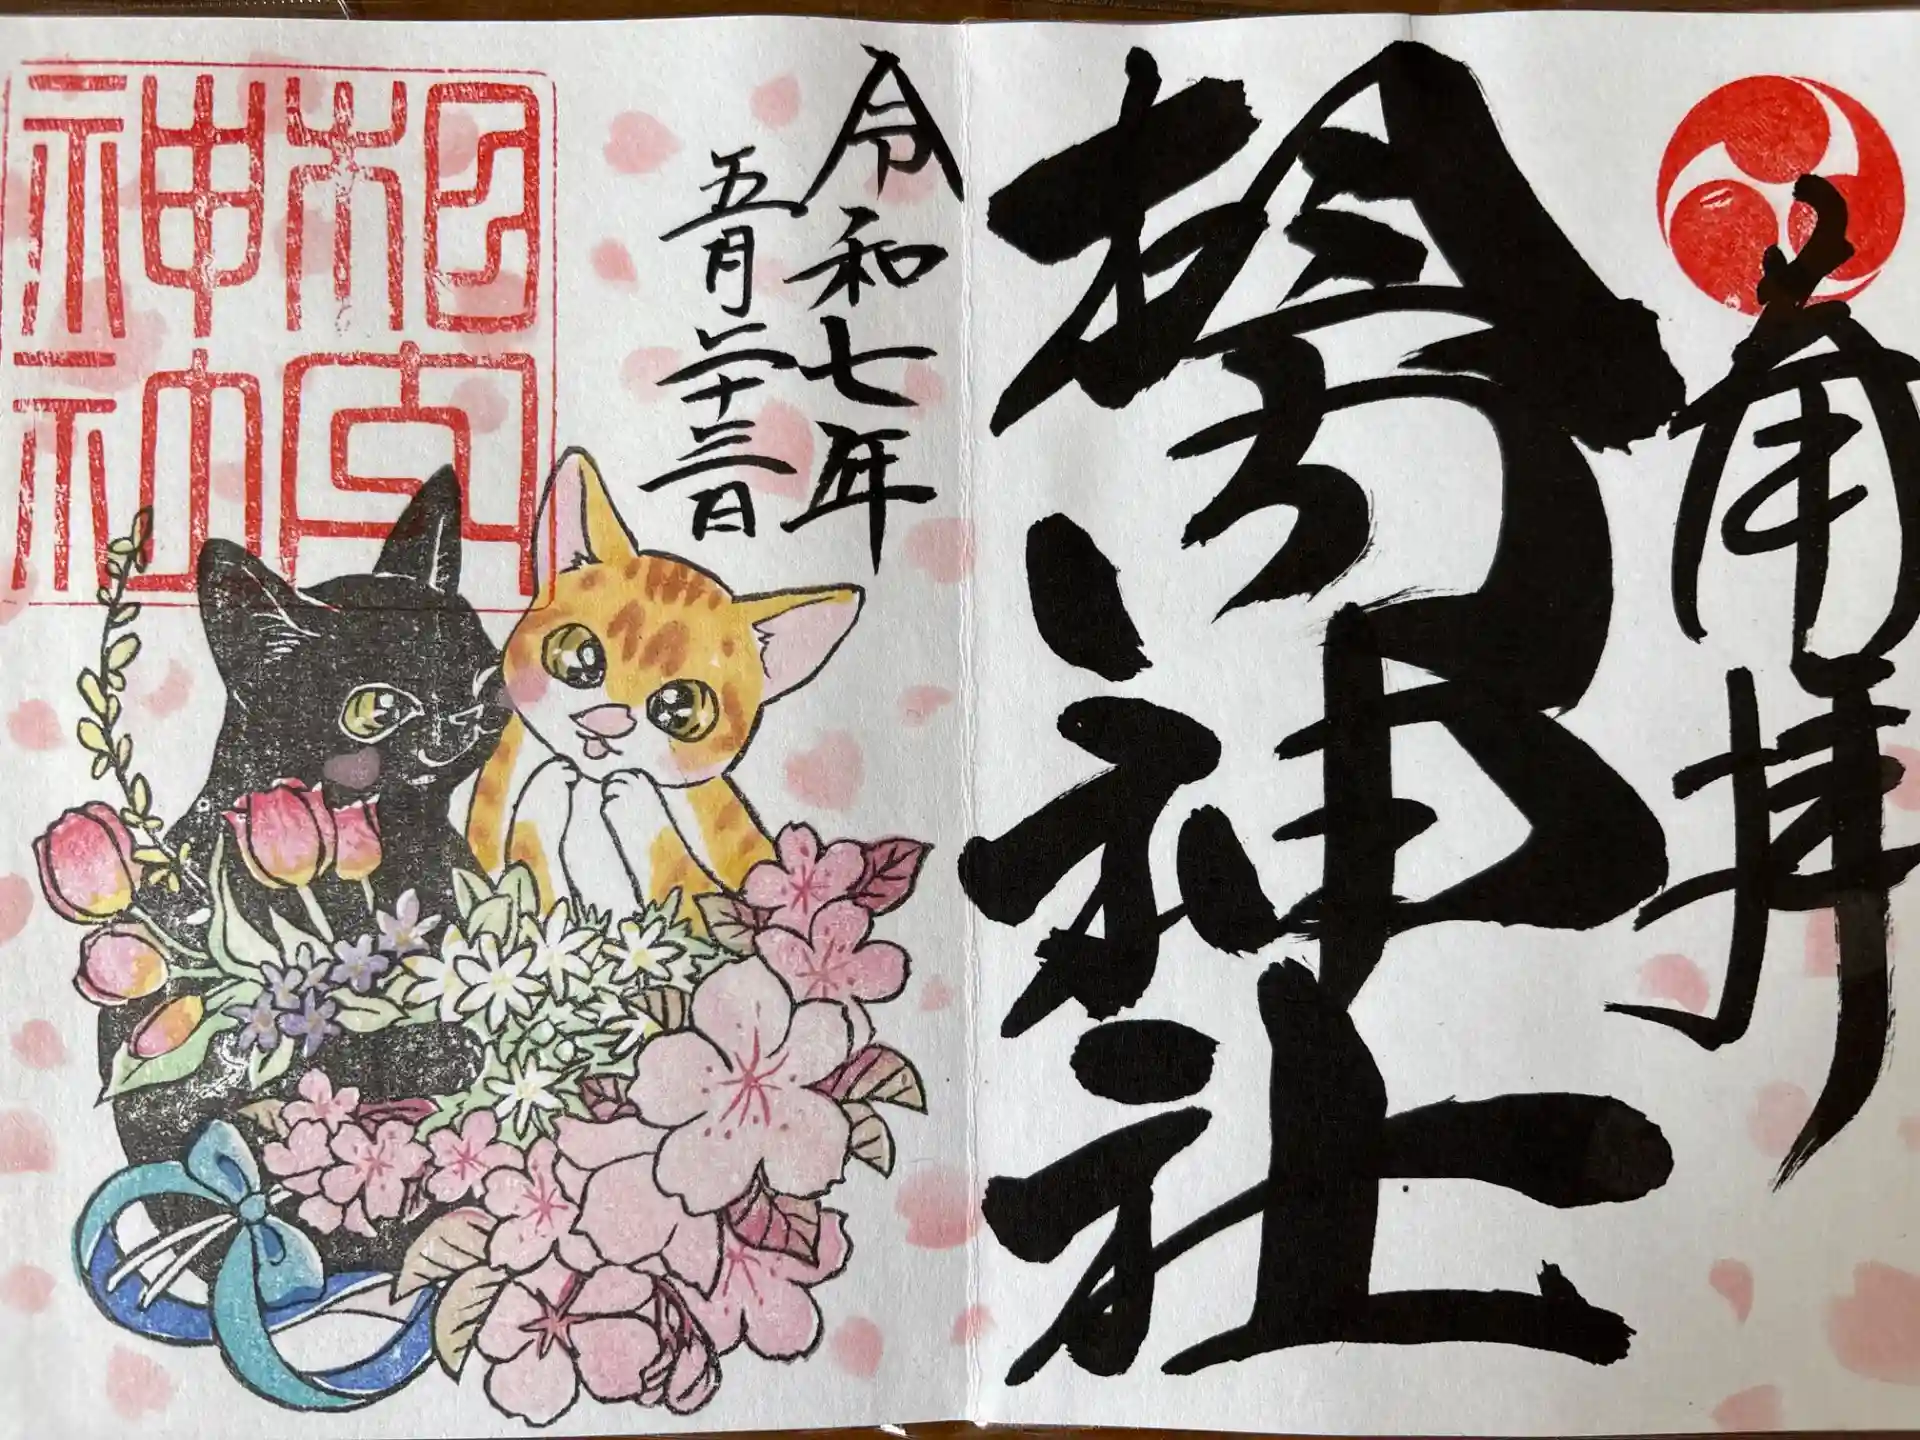 奉拝
相内神社
令和七年
五月二十三日
相内
神社